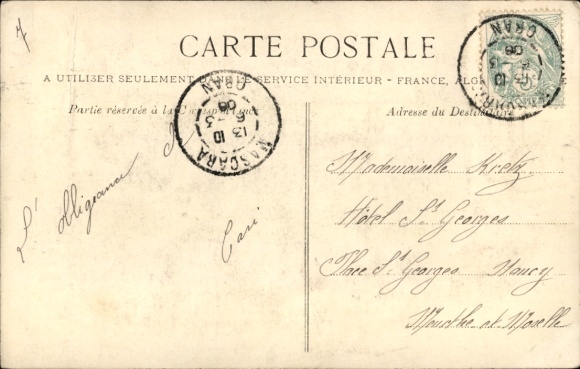 CARTE POSTALE
A UTILISER SEULEMENT DANS LE SERVICE INTÉRIEUR - FRANCE, ALG
Partie réservée à la Correspondance
Adresse du Destinataire
MASCARA
13 10
6 - 3
06
ORAN
MASCARA
13 10
6 - 3
06
ORAN
L'obligeance
Mademoiselle Kretz
Hôtel St Georges
Place St Georges Nancy
Meurthe et Moselle